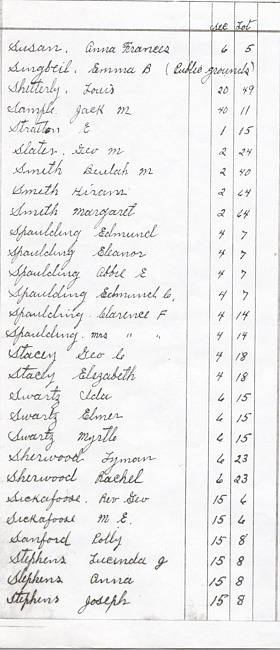 Sec Lot
Susan, Anna Frances 6 5
Singbeil, Emma B (Public grounds)
Shetterly, Louis 20 49
Sample, Jack M 40 11
Stratton E 1 15
Slater, Geo M 2 24
Smith Beulah M 2 40
Smith Hiram 2 64
Smith Margaret 2 64
Spaulding Edmund 4 7
Spaulding Eleanor 4 7
Spaulding Abbie E 4 7
Spaulding Edmund C, 4 7
Spaulding Clarence F 4 14
Spaulding, Mrs " " 4 14
Stacey Geo C 4 18
Stacey Elizabeth 4 18
Swartz Ida 6 15
Swartz Elmer 6 15
Swartz Myrtle 6 15
Sherwood Lyman 6 23
Sherwood Rachel 6 23
Sickafoose, Rev Geo 15 6
Sickafoose M E. 15 6
Sanford Polly 15 8
Stephens Lucinda J 15 8
Stephens Anna 15 8
Stephens Joseph 15 8